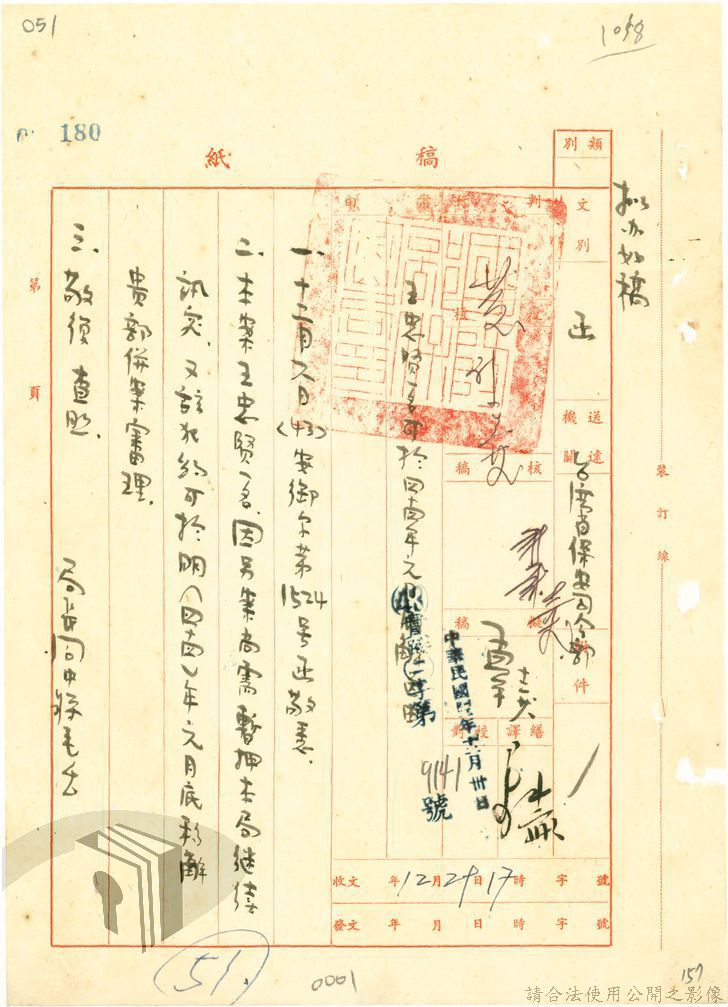 051
1058
180
稿紙
類別
文別
函
送達機關
台灣省保安司令部
附件
擬辦如稿
判行
核稿
擬稿
繕譯
校對
王忠賢一名可於四四年元月
中華民國 年十二月卅日
字第9141號
一、十二月八日(43)安御字第1524號函敬悉。
二、本案王忠賢一名，因另案尚需暫押本局繼續
訊究，又該犯約可於明(四四)年元月底移解
貴部併案審理。
三、敬復 查照。
局長
收文 年12月29日17時 字 號
發文 年 月 日 時 字 號
第 頁
裝訂線
51.
0001
157
請合法使用公開之影像